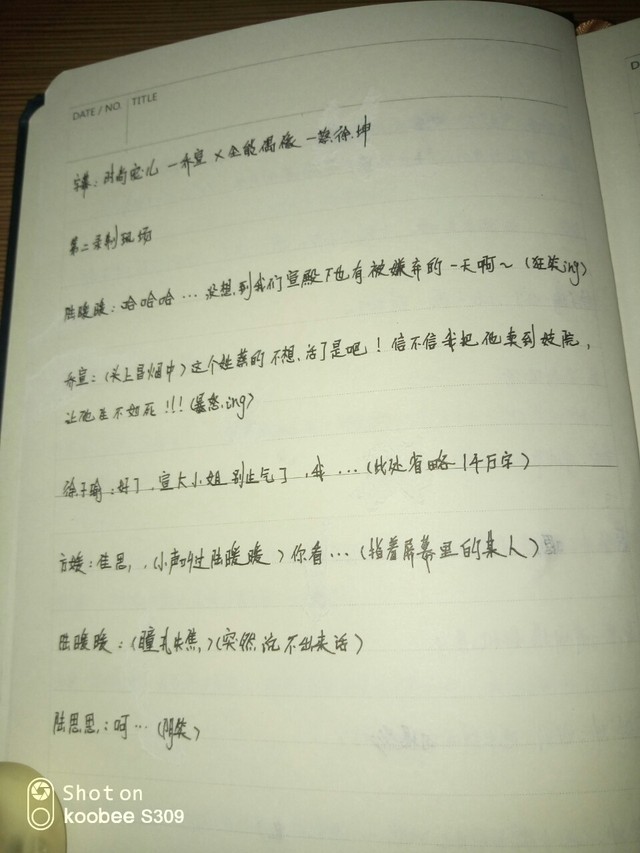 DATE / NO. TITLE
字幕：时尚宠儿一乔宣 × 全能偶像一蔡徐坤
第二录制现场
陆暖暖：哈哈哈…没想到我们宣殿下也有被嫌弃的一天啊～（狂笑ing）
乔宣：（头上冒烟中）这个姓蔡的不想活了是吧！信不信我把他卖到妓院，
让他生不如死！！！（暴怒ing）
徐子瑜：好了，宣大小姐别生气了，我…（此处省略14万字）
方媛：佳思，（小声 陆暖暖）你看…（指着屏幕里的某人）
陆暖暖：（瞳孔失焦）（突然说不出来话）
陆思思：呵…（阴笑）
Shot on
koobee S309